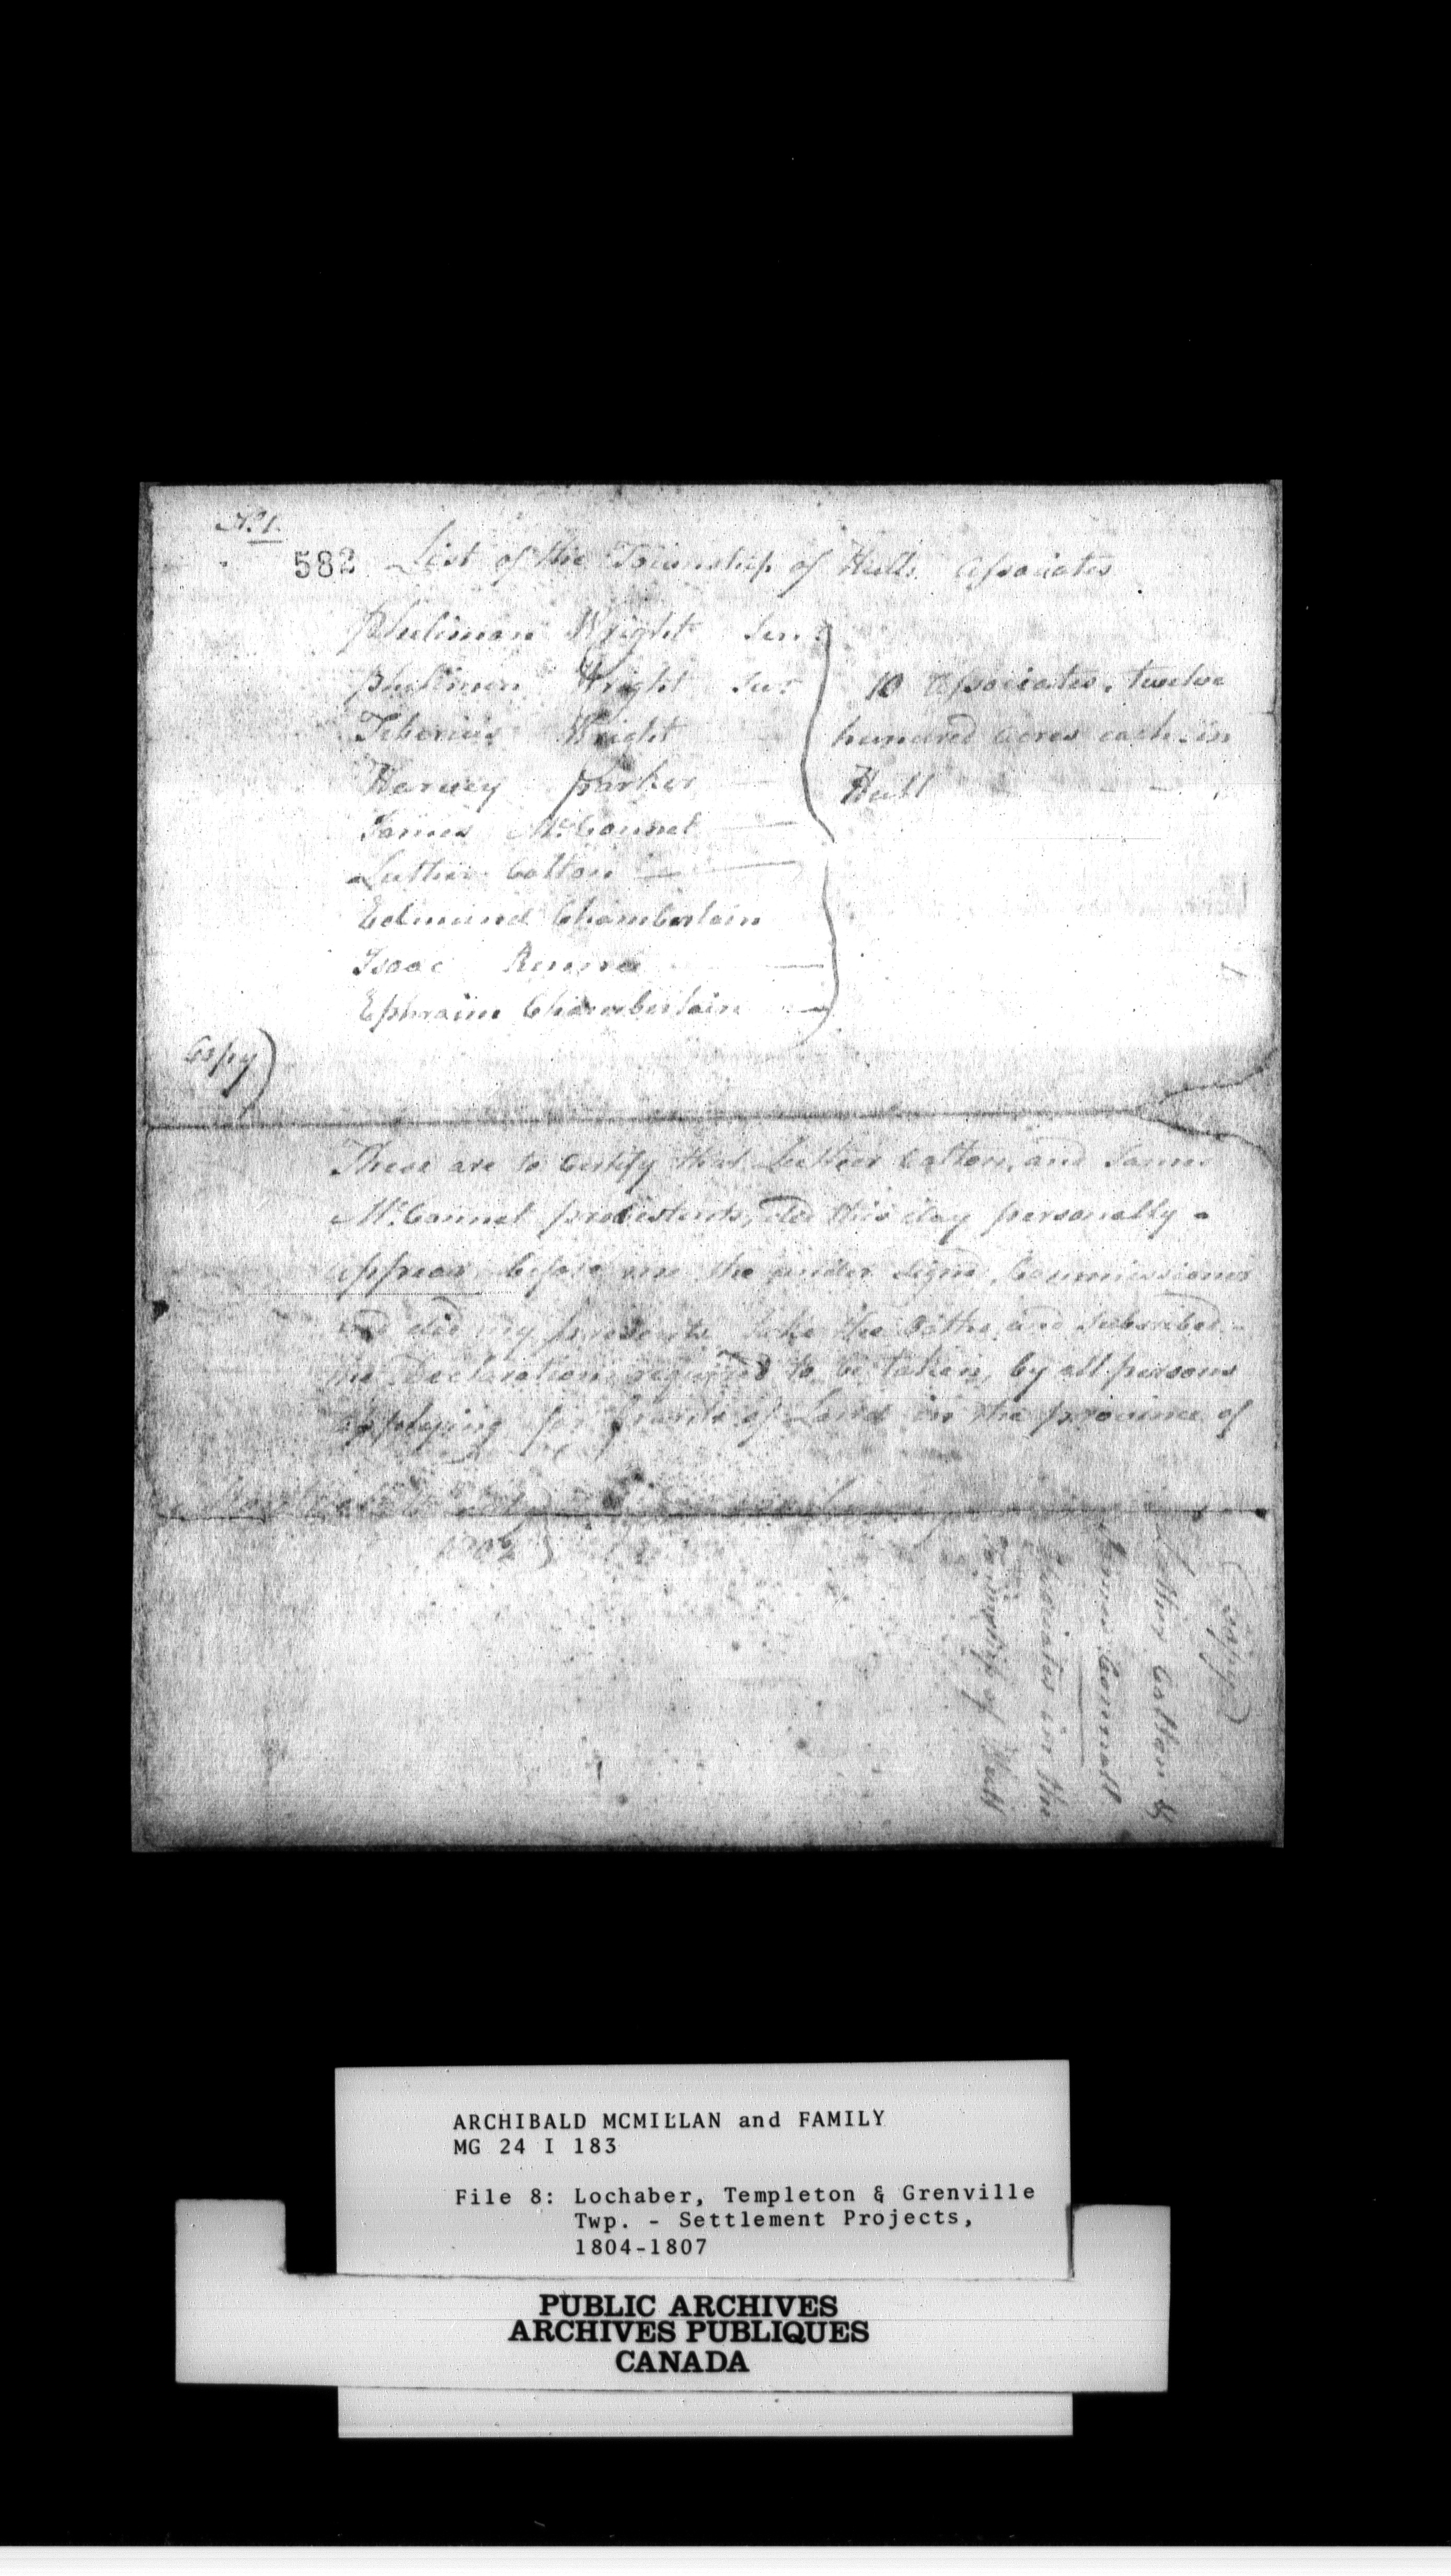 No. 1.
582 List of the Township of Hulls Associates
Philimon Wright Sen.
Philimon Wright Jur
10 Associates, twelve
Tiberius Wright
hundred acres each in
Harvey Parker
Hull
James McConnel
Luther Colton
Edmund Chamberlain
Isaac
Ephraim Chamberlain
Copy)
These are to Certify that Luther Colton, and James
McConnel protestents, did this day personally
appear before me the under signd Commissioner
and did my take the Oaths, and Subscribed
the Declaration required to be taken, by all persons
applying for grants of Land in the province of
(Copy)
Luther Colton &
James Connell
Associates in the
Township of Hull
ARCHIBALD MCMILLAN and FAMILY
MG 24 I 183
File 8: Lochaber, Templeton & Grenville
Twp. - Settlement Projects,
1804-1807
PUBLIC ARCHIVES
ARCHIVES PUBLIQUES
CANADA